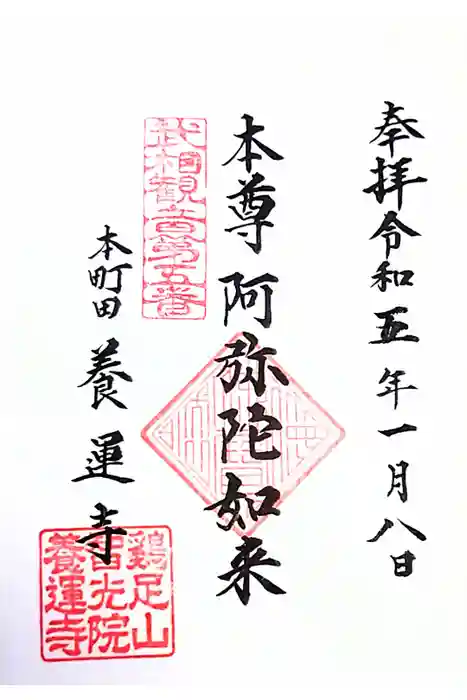 奉拝令和五年一月八日
本尊阿弥陀如来
武相観音第五番
本町田養運寺
鷄足山
宿光院
養運寺